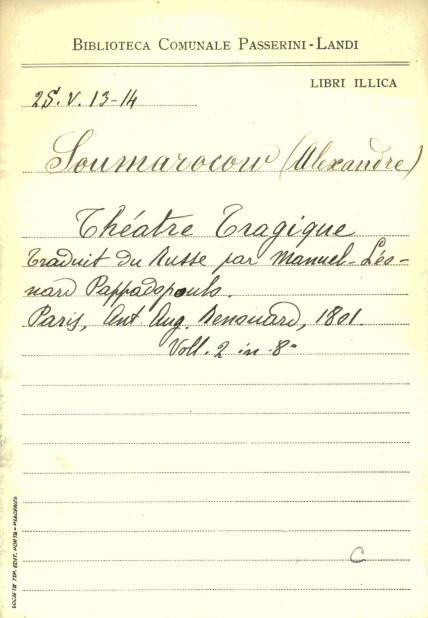 BIBLIOTECA COMUNALE PASSERINI-LANDI
LIBRI ILLICA
25. V. 13-14
Soumarocow (Alexandre)
Théatre Tragique
Traduit du Russe par Manuel-Léo-
nard Pappadopoulo.
Paris, Ant. Aug. Renouard, 1801.
Voll. 2 in-8°
C
SOCIETÀ TIP. EDIT. PORTA - PIACENZA